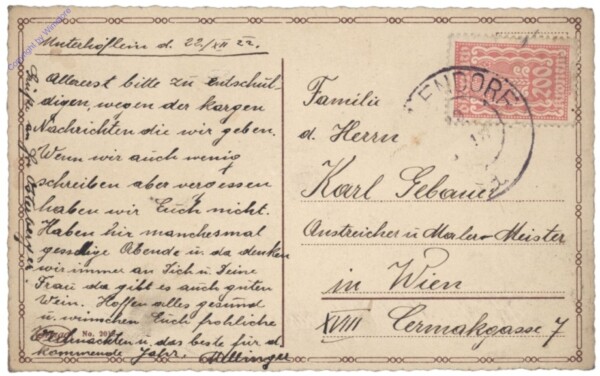 Copyright by Wendove
Unterhöflein d. 22/XII 22.
Allererst bitte zu entschul-
digen, wegen der kargen
Nachrichten die wir geben.
Wenn wir auch wenig
schreiben aber vergessen
haben wir Euch nicht.
Haben hir manchesmal
gesellige Abende u. da denken
wir immer an Dich u. Deine
Frau da gibt es auch guten
Wein. Hoffen alles gesund
u. wünschen Euch frohliche
Weihnachten u. das beste für d.
kommende Jahr.
No.
ENDORF
200
Familie
d. Herrn
Karl Gebauer
Anstreicher u Maler-Meister
in Wien
XVIII Cermakgasse 7